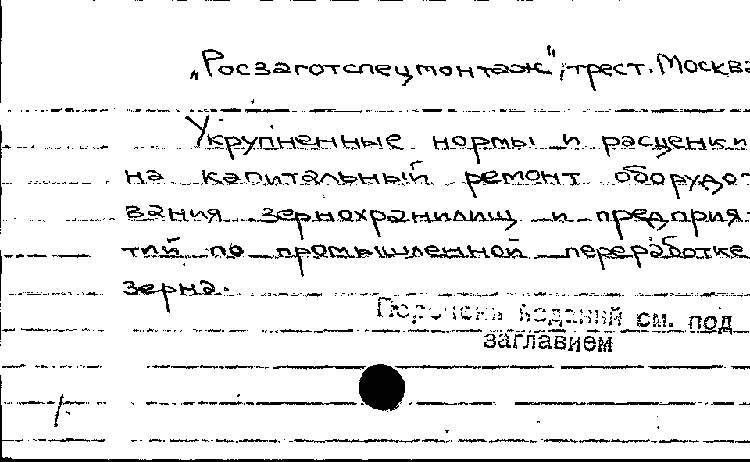 „Росзаготспецмонтаж", трест. Москва
Укрупненные нормы и расценки
на капитальный ремонт оборудо-
вания зернохранилищ и предприя-
тий по промышленной переработке
зерна.
Перечень изданий см. под
заглавием